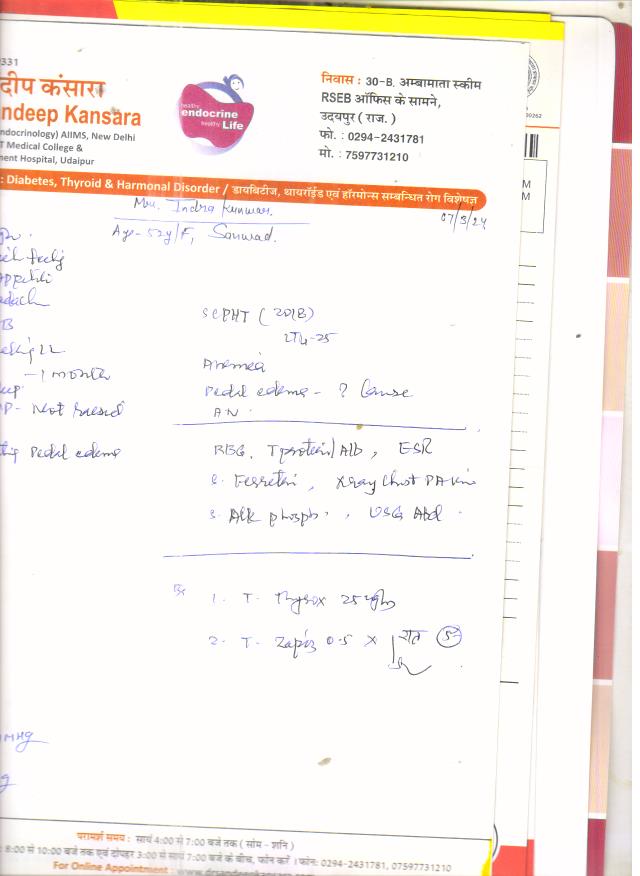 331
दीप कंसारा
ndeep Kansara
ndocrinology) AIIMS, New Delhi
T Medical College &
ment Hospital, Udaipur
healthy
endocrine
healthy Life
निवास : 30-B, अम्बामाता स्कीम
RSEB ऑफिस के सामने,
उदयपुर ( राज. )
फो. : 0294-2431781
मो. : 7597731210
: Diabetes, Thyroid & Harmonal Disorder / डायबिटीज, थायरॉईड एवं हॉरमोन्स सम्बन्धित रोग विशेषज्ञ
Mrs. Indra Kunwar.
07/3/24
Age- 52y/F, Sanwad.
SCPHT (2018)
LT4-25
- 1 month
Anemia
Pedal edema - ? Cause
AN.
Pedal edema
RBG, T protein/Alb, ESR
S. Ferritin, Xray Chest PA View
S. Alk phosph., USG Abd.
Rx
1. T. Thyrox 25
2. T. Zapiz 0.5 x रात 5
MMHg
परामर्श समय : सायं 4:00 से 7:00 बजे तक ( सोम - शनि )
: 8:00 से 10:00 बजे तक एवं दोपहर 3:00 से सायं 7:00 बजे के बीच, फोन करें । फोन: 0294-2431781, 07597731210
For Online Appointment :
00262
M
M